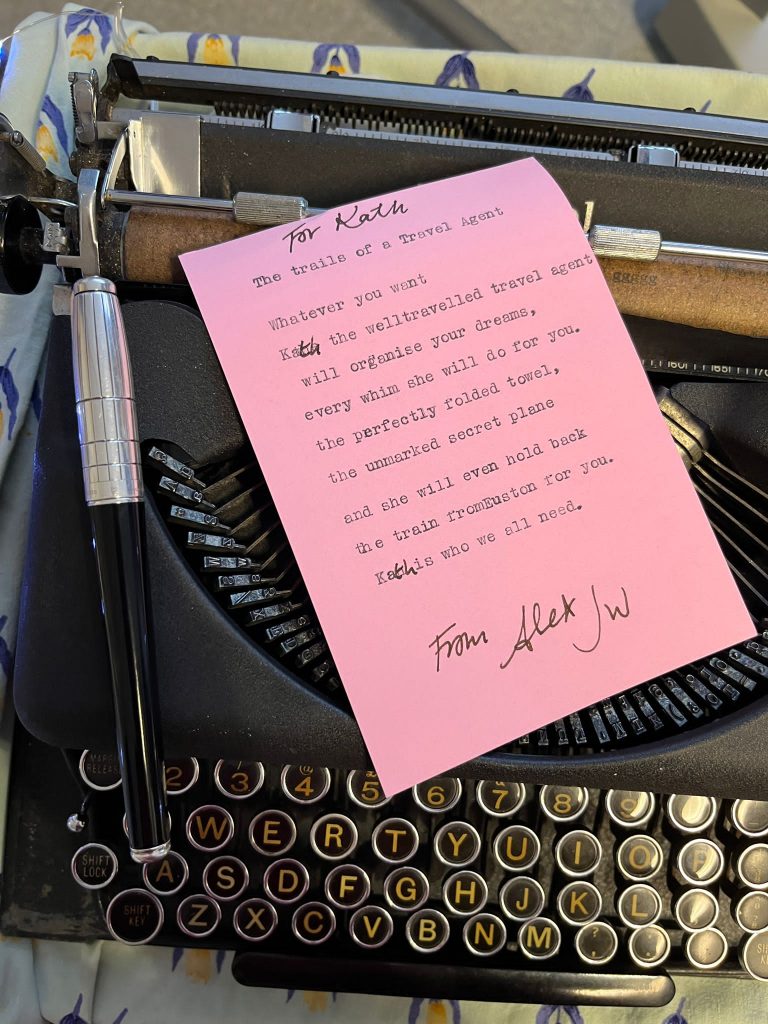 For Kath
The trails of a Travel Agent
Whatever you want
Kath the welltravelled travel agent
will organise your dreams,
every whim she will do for you.
the perfectly folded towel,
the unmarked secret plane
and she will even hold back
the train fromEuston for you.
Kathis who we all need.
From Alex JW
ggggg
160 165 170
2 3 4 5 6 7 8 9
W E R T Y U I O P
SHIFT LOCK A S D F G H J K L
SHIFT KEY Z X C V B N M